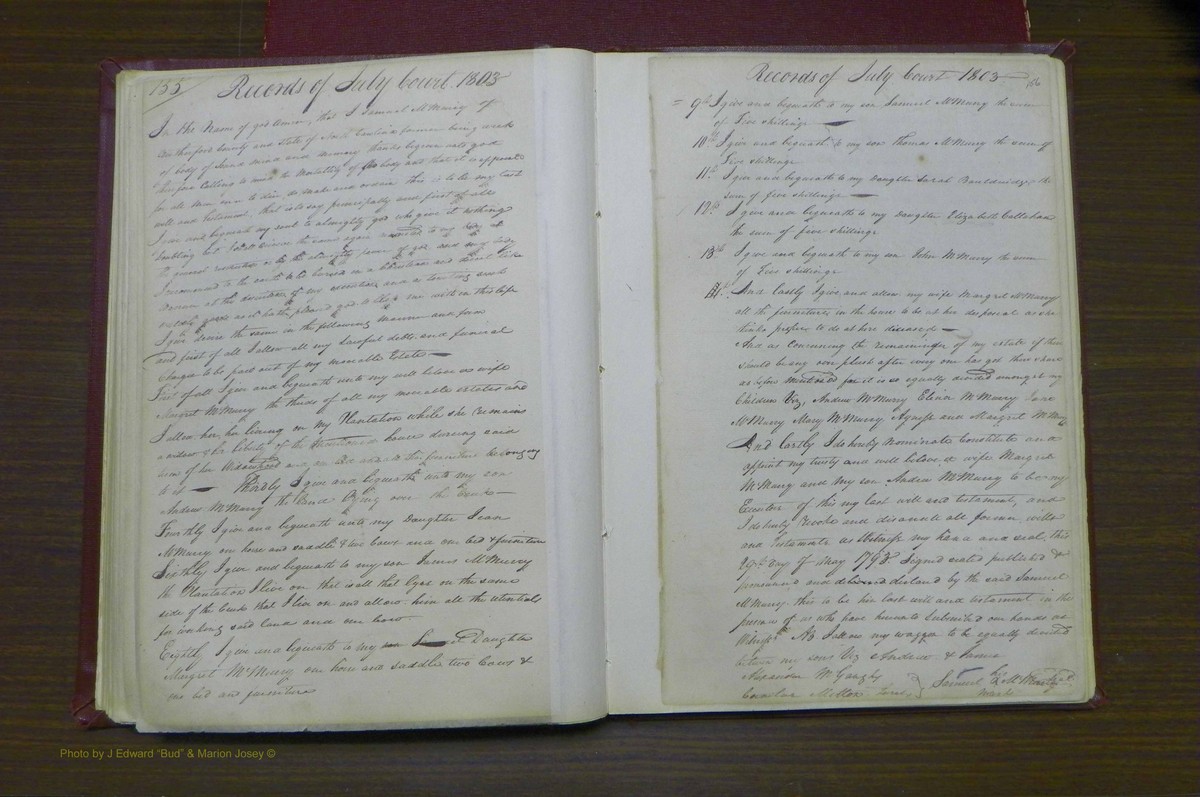 155 Records of July Court 1803
In the Name of god Amen, that I Samuel McMurry of
Rutherford County and State of North Carolina farmer being weak
of body of Sound mind and memory thanks be given unto god
therefore Calling to mind the Mortality of my body and that it is appointed
for all men once to die, do make and ordain this to be my last
will and testament, that is to say principally and first of all
I give and bequeath my soul to almighty god who gave it nothing
doubting but I shall receive the same again at the
general resurrection by the almighty power of god and my body
I recommend to the earth to be buried in a Christian and decent like
manner at the discretion of my executors, and as touching such
worldly goods as it hath pleased god to bless me with in this life
I give devise the same in the following manner and form
and first of all I allow all my lawful debts and funeral
charges to be paid out of my moveable Estate
First of all I give and bequeath unto my well beloved wife
Margret McMurry the thirds of all my moveable estates and
I allow her, her living on my Plantation while she remains
a widow & her liberty of the house during said
term of her and one Bed and all the furniture belonging
to it — Thirdly I give and bequeath unto my son
Andrew McMurry the land Lying over the Creek —
Fourthly I give and bequeath unto my Daughter Jean
McMurry one horse and saddle & two Cows and one bed & furniture
Sixthly I give and bequeath to my son James McMurry
the Plantation I live on that is all that Lyes on the same
side of the Creek that I live on and allow him all the utentials
for working said land and one horse
Eighthly I give and bequeath to my Daughter
Margret McMurry one horse and saddle two Cows &
one bed and furniture
Records of July Court 1803 156
9th I give and bequeath to my son Samuel McMurry the sum
of Five shillings
10th I give and bequeath to my son Thomas McMurry the sum of
Five shillings
11th I give and bequeath to my Daughter Sarah the
sum of five shillings
12th I give and bequeath to my Daughter Elizabeth Callahan
the sum of five shillings
13th I give and bequeath to my son John McMurry the sum
of Five shillings
14th And Lastly I give and allow my wife Margret McMurry
all the furniture in the house to be at her disposal as she
thinks proper to do at her disease
And as Concerning the remainder of my estate if there
should be any overplush after every one has got their share
as before mentioned for it is equally divided amongst my
Children Viz, Andrew McMurry Elinor McMurry Jane
McMurry Mary McMurry Agness and Margret McMurry
And Lastly I do hereby Nominate Constitute and
appoint my trusty and well beloved wife Margret
McMurry and my son Andrew McMurry to be my
Executors of this my last will and testament, and
I do hereby revoke and disannull all former wills
and testaments as Witness my hand and seal, this
29th Day of May 1793. Signed sealed published &
pronounced and declared by the said Samuel
McMurry this to be his last will and testament in the
presence of us who have hereunto Subscribed our hands as
Witness NB I allow my waggon to be equally divided
between my sons Viz Andrew & James
Alexander McGaughy
Cornelius Samuel his McMurry
mark
Photo by J Edward "Bud" & Marion Josey ©